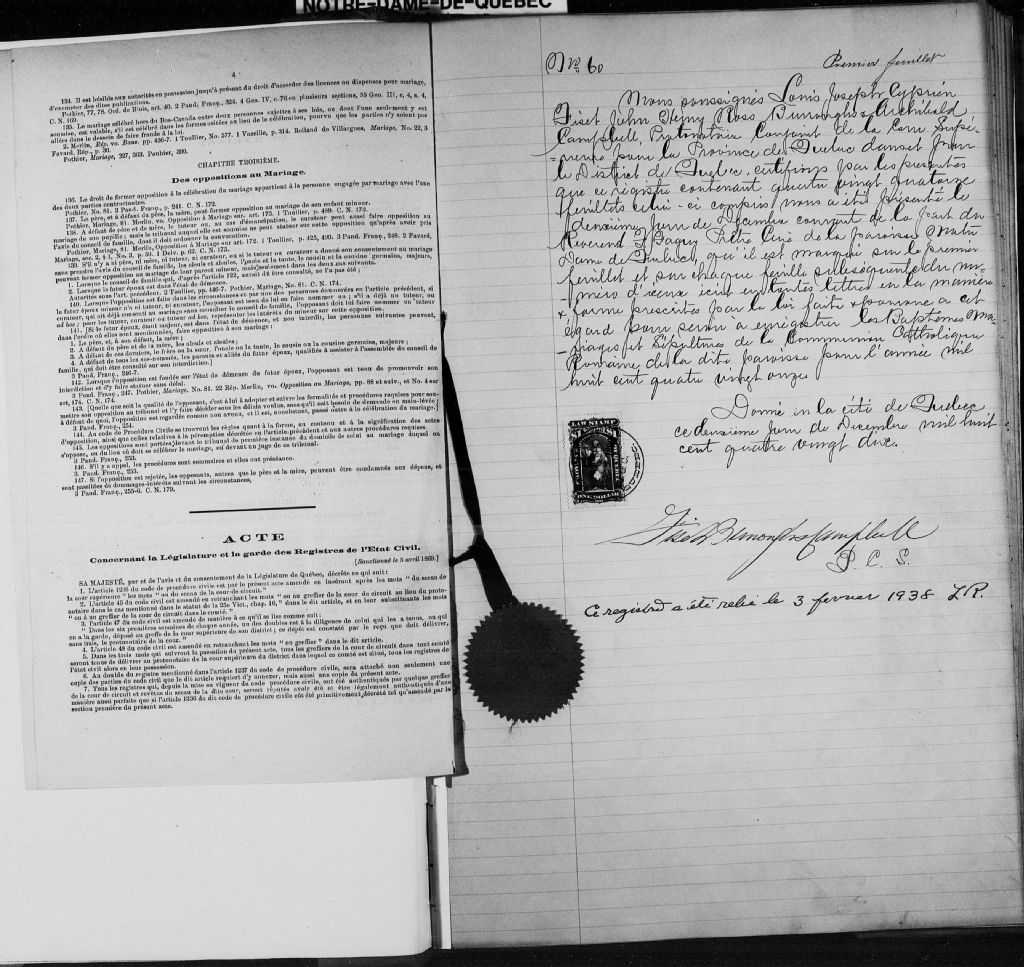 NOTRE-DAME-DE-QUÉBEC
4
134. Il est loisible aux autorités en possession jusqu'à présent du droit d'accorder des licences ou dispenses pour mariage,
d'exempter des dites publications.
Pothier, 77, 78. Ord. de Blois, art. 40. 2 Pand. Franç., 324. 4 Geo. IV, c. 76 en plusieurs sections, 35 Geo. III, c, 4, s. 4,
C. N. 169.
135. Le mariage célébré hors du Bas-Canada entre deux personnes sujettes à ses lois, ou dont l'une seulement y est
soumise, est valable, s'il est célébré dans les formes usitées au lieu de la célébration, pourvu que les parties n'y soient pas
allées dans le dessein de faire fraude à la loi.
2. Merlin, Rép. vo. Bans. pp. 436-7. 1 Toullier, No. 577. 1 Vazille, p. 314. Rolland de Villargues, Mariage, No. 22, 3
Favard, Rép., p. 30.
Pothier, Mariage, 327, 363. Pouhier, 390.
CHAPITRE TROISIÈME.
Des oppositions au Mariage.
136. Le droit de former opposition à la célébration du mariage appartient à la personne engagée par mariage avec l'une
des deux parties contractantes.
Pothier, No. 81. 3 Pand. Franç., p. 241. C. N. 172.
137. Le père, et à défaut du père, la mère, peut former opposition au mariage de son enfant mineur.
Pothier, Mariage, 81. Merlin, vo. Opposition à Mariage sur art. 173. 1 Toullier, p. 489. C. N. 173.
138. A défaut de père et de mère, le tuteur ou au cas d'émancipation, le curateur peut aussi faire opposition au
mariage de son pupille ; mais le tribunal auquel elle est soumise ne peut statuer sur cette opposition qu'après avoir pris
l'avis du conseil de famille, dont il doit ordonner la convocation.
Pothier, Mariage, 81. Merlin, Opposition à Mariage sur art. 172. 1 Toullier, p. 425, 490. 3 Pand. Franç., 248. 2 Favard,
Mariage, sec. 2, § 1, No. 3, p. 59. 1 Delv. p. 63. C. N. 175.
139. S'il n'y a ni père, ni mère, ni tuteur, ni curateur, ou si le tuteur ou curateur a donné son consentement au mariage
sans prendre l'avis du conseil de famille, les aïeuls et aïeules, l'oncle et la tante, le cousin et la cousine germains, majeurs,
peuvent former opposition au mariage de leur parent mineur, mais seulement dans les deux cas suivants.
1. Lorsque le conseil de famille qui, d'après l'article 122, aurait dû être consulté, ne l'a pas été ;
2. Lorsque le futur époux est dans l'état de démence.
Autorités sous l'art. précédent. 2 Toullier, pp. 486-7. Pothier, Mariage, No. 81. C. N. 174.
140. Lorsque l'opposition est faite dans les circonstances et par une des personnes énumérées en l'article précédent, si
le futur époux mineur n'a ni tuteur, ni curateur, l'opposant est tenu de lui en faire nommer un ; s'il a déjà un tuteur, ou
curateur, qui ait déjà consenti au mariage sans consulter le conseil de famille, l'opposant doit lui faire nommer un tuteur
ad hoc ; pour les tuteur, curateur ou tuteur ad hoc, représenter les intérêts du mineur sur cette opposition.
141. [Si le futur époux, étant majeur, est dans l'état de démence, et non interdit, les personnes suivantes peuvent,
dans l'ordre où elles sont mentionnées, faire opposition à son mariage :
1. Le père, et, à son défaut, la mère ;
2. A défaut du père et de la mère, les aïeuls et aïeules ;
3. A défaut de ces derniers, le frère ou la sœur, l'oncle ou la tante, le cousin ou la cousine germains, majeurs ;
4. A défaut de tous les sus-nommés, les parents et alliés du futur époux, qualifiés à assister à l'assemblée du conseil de
famille, qui doit être consulté sur son interdiction.]
3 Pand. Franç., 246-7.
142. Lorsque l'opposition est fondée sur l'état de démence du futur époux, l'opposant est tenu de promouvoir son
interdiction et d'y faire statuer sans délai.
3 Pand. Franç., 247. Pothier, Mariage, No. 81. 22 Rép. Merlin, vo. Opposition au Mariage, pp. 88 et suiv., et No. 4 sur
art. 174. C. N. 174.
143. [Quelle que soit la qualité de l'opposant, c'est à lui à adopter et suivre les formalités et procédures requises pour sou-
mettre son opposition au tribunal et l'y faire décider sous les délais voulus, sans qu'il soit besoin de demande en main-levée ;
à défaut de quoi, l'opposition est regardée comme non avenu, et il est, nonobstant, passé outre à la célébration du mariage.]
3 Pand. Franç., 254.
144. Au code de Procédure Civile se trouvent les règles quant à la forme, au contenu et à la signification des actes
d'opposition, ainsi que celles relatives à la péremption décrétée en l'article précédent et aux autres procédures requises.
145. Les oppositions sont portées devant le tribunal de première instance du domicile de celui au mariage duquel on
s'oppose, ou du lieu où doit se célébrer le mariage, ou devant un juge de ce tribunal.
3 Pand. Franç., 253.
146. S'il y a appel, les procédures sont sommaires et elles ont préséance.
3 Pand. Franç., 253.
147. Si l'opposition est rejetée, les opposants, autres que le père et la mère, peuvent être condamnés aux dépens, et
sont passibles de dommages-intérêts suivant les circonstances,
3 Pand. Franç., 255-6. C. N. 179.
ACTE
Concernant la Législature et la garde des Registres de l'Etat Civil.
[Sanctionné le 5 avril 1869.]
SA MAJESTÉ, par et de l'avis et du consentement de la Législature de Québec, décrète ce qui suit:
1. L'article 1236 du code de procédure civile est par le présent acte amendé en insérant après les mots "du sceau de
la cour supérieure" les mots "ou du sceau de la cour de circuit."
2. L'article 45 du code civil est amendé en retranchant les mots "ou au greffier de la cour de circuit au lieu du proto-
notaire dans le cas mentionné dans le statut de la 25e Vict., chap. 16," dans le dit article, et en leur substituant les mots
"ou à un greffier de la cour de circuit dans le comté."
3. l'article 47 du code civil est amendé de manière à ce qu'il se lise comme suit:
"Dans les six premières semaines de chaque année, un des doubles est à la diligence de celui qui les a tenus, ou qui
en a la garde, déposé au greffe de la cour supérieure de son district ; ce dépôt est constaté par le reçu que doit délivrer,
sans frais, le protonotaire de la cour."
4. L'article 48 du code civil est amendé en retranchant les mots "ou greffier" dans le dit article.
5. Dans les trois mois qui suivront la passation du présent acte, tous les greffiers de la cour de circuit dans tout comté
seront tenus de délivrer au protonotaire de la cour supérieure du district dans lequel ce comté est situé, tous les registres de
l'état civil alors en leur possession.
6. Au double du registre mentionné dans l'article 1237 du code de procédure civile, sera attaché non seulement une
copie des parties du code civil que le dit article requiert d'y annexer, mais aussi une copie du présent acte.
7. Tous les registres qui, depuis la mise en vigueur du code de procédure civile, ont été authentiqués par quelque greffier
de la cour de circuit et revêtus du sceau de la dite cour, seront réputés avoir été et être légalement authentiqués d'une
manière aussi parfaite que si l'article 1236 du dit code de procédure civile eût été primitivement décrété tel qu'amendé par la
section première du présent acte.
No 60
Premier feuillet
Nous soussignés Louis Joseph Cyprien
Fiset John Henry Ross Burroughs Archibald
Campbell, Protonotaire Conjoint de la Cour Supé-
-rieure pour la Province de Québec dans et pour
le District de Québec, certifions par les présentes
que ce registre contenant quatre vingt quatorze
feuillets celui-ci compris nous a été présenté le
deuxième jour de Décembre courant de la part du
Reverend F. Faguy Prêtre Curé de la paroisse Notre
Dame de Québec, qu'il est marqué sur le premier
feuillet et sur chaque feuille subséquente du nu-
-méro d'iceux écrit en toutes lettres en la manière
& forme prescrites par la loi faite & pourvue a cet
égard pour servir a enregistrer les Baptêmes Ma-
-riages et Sépultures de la Communion Catholique
Romaine de la dite paroisse pour l'année mil
huit cent quatre vingt onze.
Donné en la cité de Québec
ce deuxième jour de Décembre mil huit
cent quatre vingt dix.
LAW STAMP
ONE DOLLAR
Fiset Burroughs Campbell
P. C. S.
Ce registre a été relié le 3 fevrier 1938 LR.